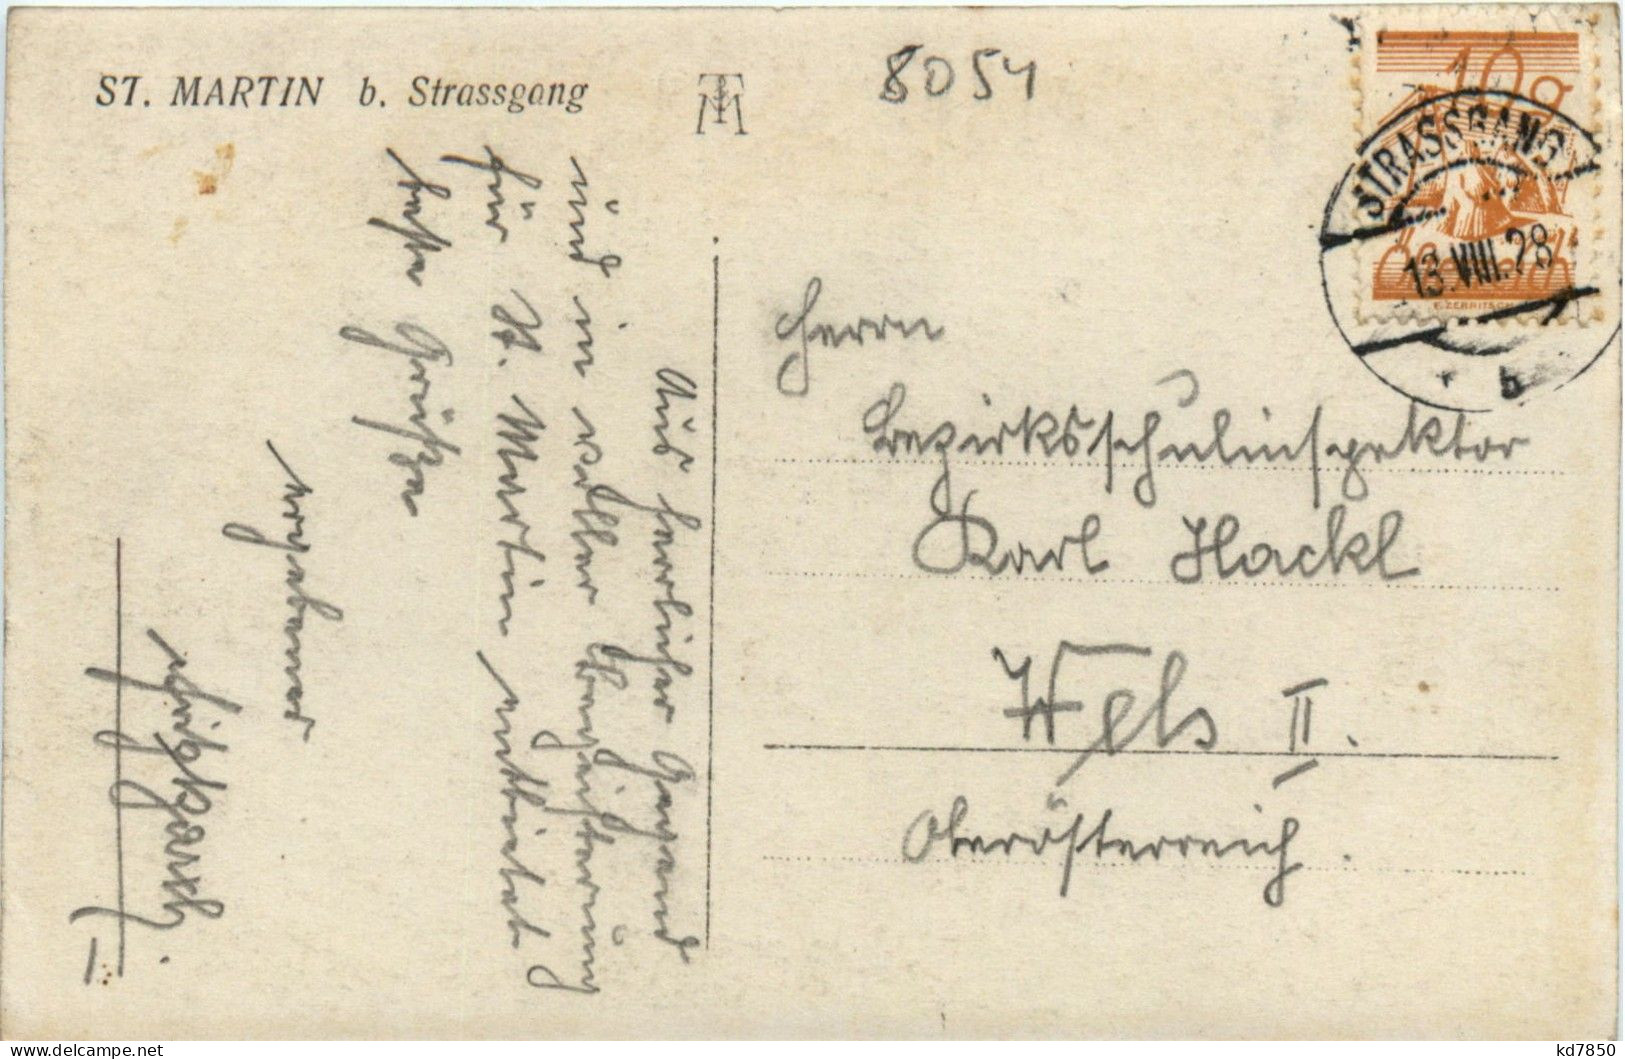 ST. MARTIN b. Strassgang
TM
8054
10g
Österreich
E. ZERRITSCH
STRASSGANG
13.VIII.28
b
Aus herrlicher Gegend
und in voller Begeisterung
für St. Martin entbietet
beste Grüße
ergebener
Herrn
Bezirksschulinspektor
Karl Hackl
Wels II.
Oberösterreich.
kd7850